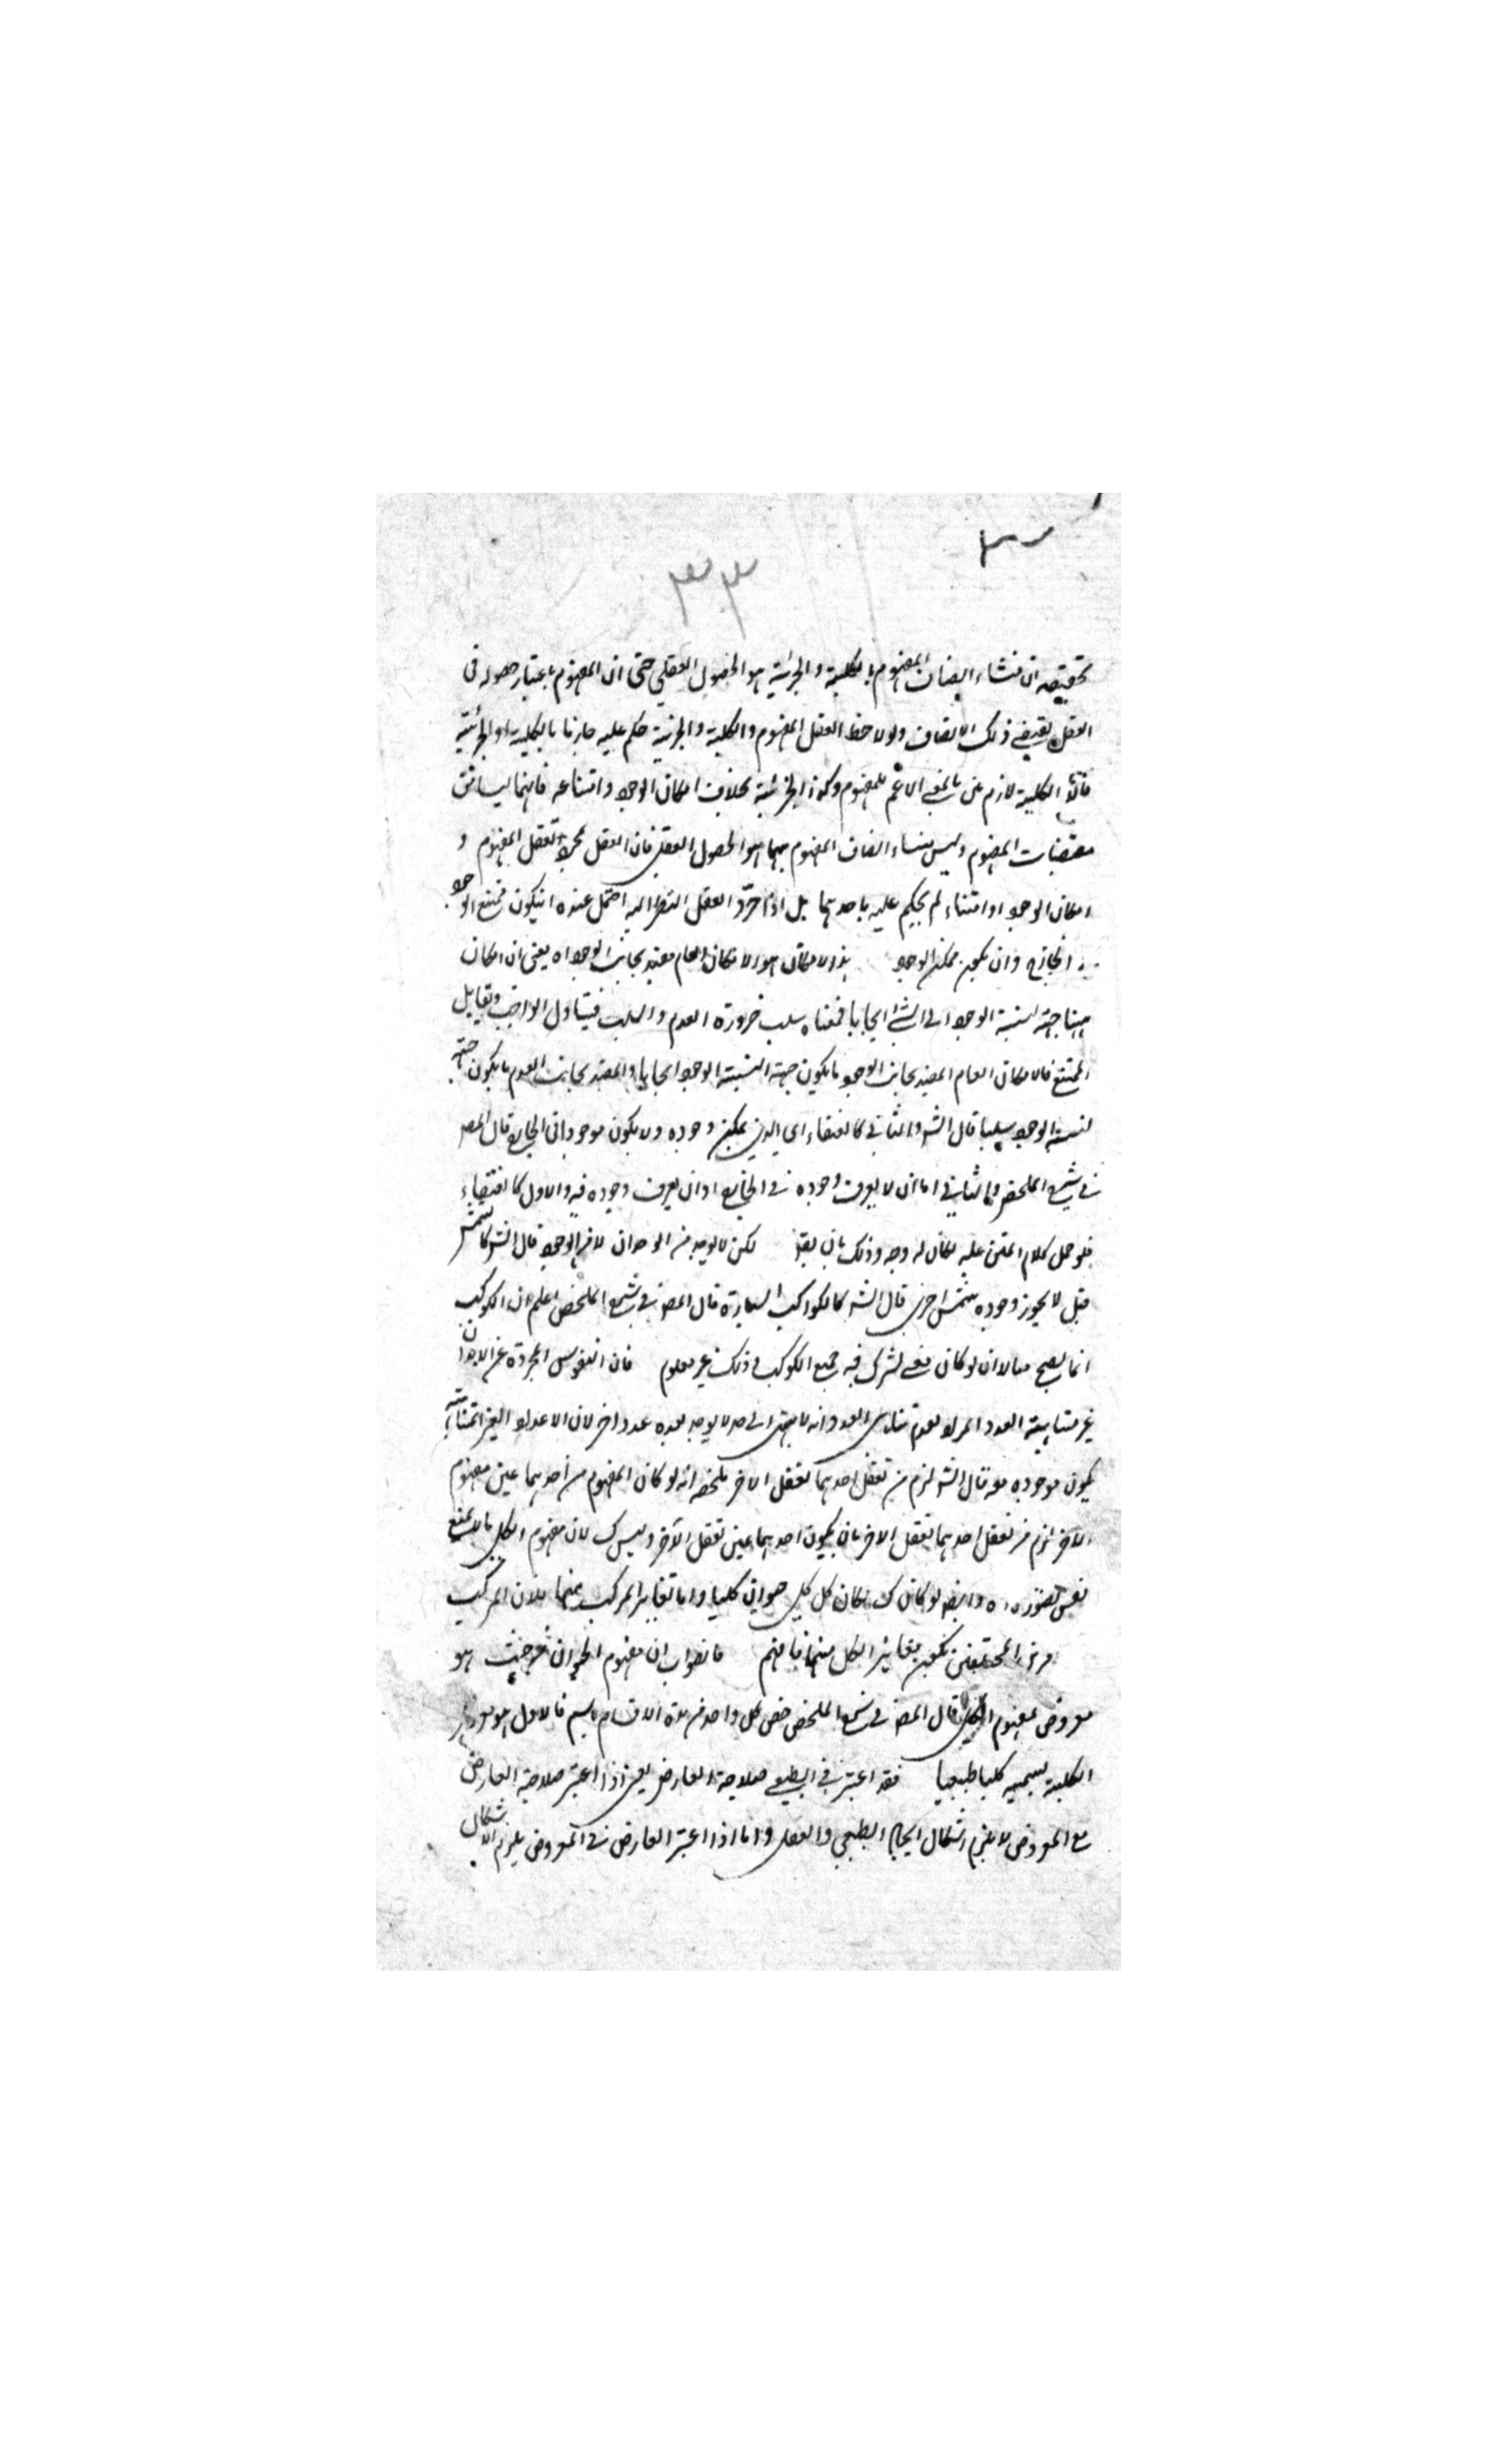 ٣٣
تحقيقه ان منشاء اتصاف المفهوم بالكلية والجزئية هو الحصول العقلي حتى ان المفهوم باعتبار حصوله في
العقل يقتضي ذلك الاتصاف ولو لاحظ العقل المفهوم والكلية والجزئية حكم عليه جازما بالكلية او الجزئية
فان الكلية لازم بالمعنى الاعم للمفهوم وكذا الجزئية بخلاف امكان الوجود وامتناعه فانهما ليسا من
مقتضيات المفهوم وليس منشاء اتصاف المفهوم بهما هو الحصول العقلي فان العقل بمجرد تعقل المفهوم و
امكان الوجود او امتناعه لم يحكم عليه باحدهما بل اذا جرد العقل النظر اليه احتمل عنده ان يكون ممتنع الوجود
في الخارج وان يكون ممكن الوجود هذا الامكان هو الامكان العام مقيد بجانب الوجود اه يعني ان امكان
هيهنا جهة لنسبة الوجود الى الشئ ايجابا فمعناه سلب ضرورة العدم والسلب فيتناول الواجب ويقابل
الممتنع فالامكان العام المقيد بجانب الوجود ما يكون جهة لنسبة الوجود ايجابا والمقيد بجانب العدم ما يكون جهة
لنسبة الوجود سلبا قال الشه والثاني كالعنقاء اي الذي يمكن وجوده ولا يكون موجودا في الخارج قال المصه
في شرح الملخص والثاني اما ان لا يعرف وجوده في الخارج او ان يعرف وجوده فيه والاول كالعنقاء
فلو حمل كلام المتن عليه لكان له وجه وذلك بان يقيد لكن لا يوجد من الوجدان لا من الوجود قال الشه كالشمس
قيل لا يجوز وجوده شمس اخرى قال الشه كالكواكب السيارة قال المصه في شرح الملخص اعلم ان الكوكب
انما يصح مثالا ان لو كان معنى يشترك فيه جميع الكواكب وذلك غير معلوم فان النفوس المجردة عن الابدان
غير متناهية العدد المراد بعدم تناهي العدد انه لا ينتهى الى حد لا يوجد بعده عدد اخر لان الاعداد الغير المتناهية
يكون موجودة معه قال الشه لزم من تعقل احدهما تعقل الاخر ملخصه انه لو كان المفهوم من احدهما عين مفهوم
الاخر لزم من تعقل احدهما تعقل الاخر بان يكون احدهما عين تعقل الآخر وليس كك لان مفهوم الكلي ما لا يمنع
نفس تصوره اه وايضه لو كان كك لكان كل كلي حيوان كليا واما تغاير المركب عنهما فلان المركب
من المحققين يكون مغايرا لكل منهما فافهم فالصواب ان مفهوم الحيوان من حيث هو
معروض لمفهوم الكلي قال المصه في شرح الملخص خص كل واحد من هذه الاقسام باسم فالاول هو معروض
الكلية نسميه كليا طبيعيا فقد اعتبر في الطبيعي صلاحية العارض يعني اذا اعتبر صلاحية العارض
مع المعروض لا يلزم اشكال ايجاب الطبيعي والعقلي واما اذا اعتبر العارض في المعروض يلزم الاشكال